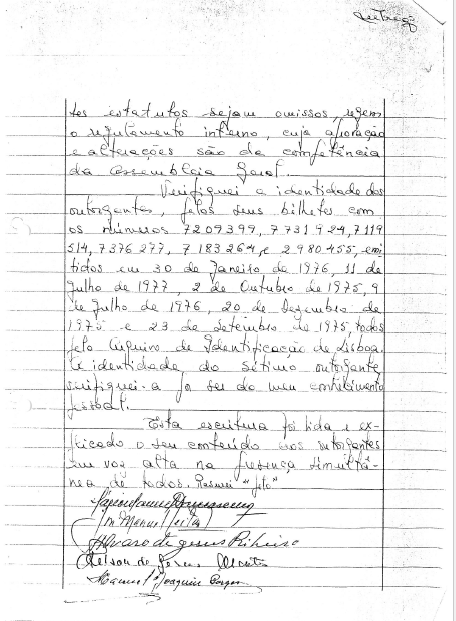 tes estatutos sejam omissos, regem
o regulamento interno, cuja aprovação
e alterações são da competência
da assembleia Geral.
Verifiquei a identidade dos
outorgantes, pelos seus bilhetes com
os números 7209399, 7731924, 7119
514, 7376277, 7183264, e 2980455, emi
tidos em 30 de Janeiro de 1976, 11 de
Julho de 1977, 2 de Outubro de 1975, 9
de Julho de 1976, 20 de Dezembro de
1975 e 23 de Setembro de 1975, todos
pelo Arquivo de Identificação de Lisboa.
A identidade do sétimo outorgante,
verifiquei-a por ser do meu conhecimento
pessoal.
Esta escritura foi lida e ex-
plicado o seu conteúdo aos outorgantes
em voz alta na presença simultâ-
nea de todos. Rasurei "
Manuel
Alvaro de Jesus Ribeiro
Nelson de Jesus
Manuel Joaquim